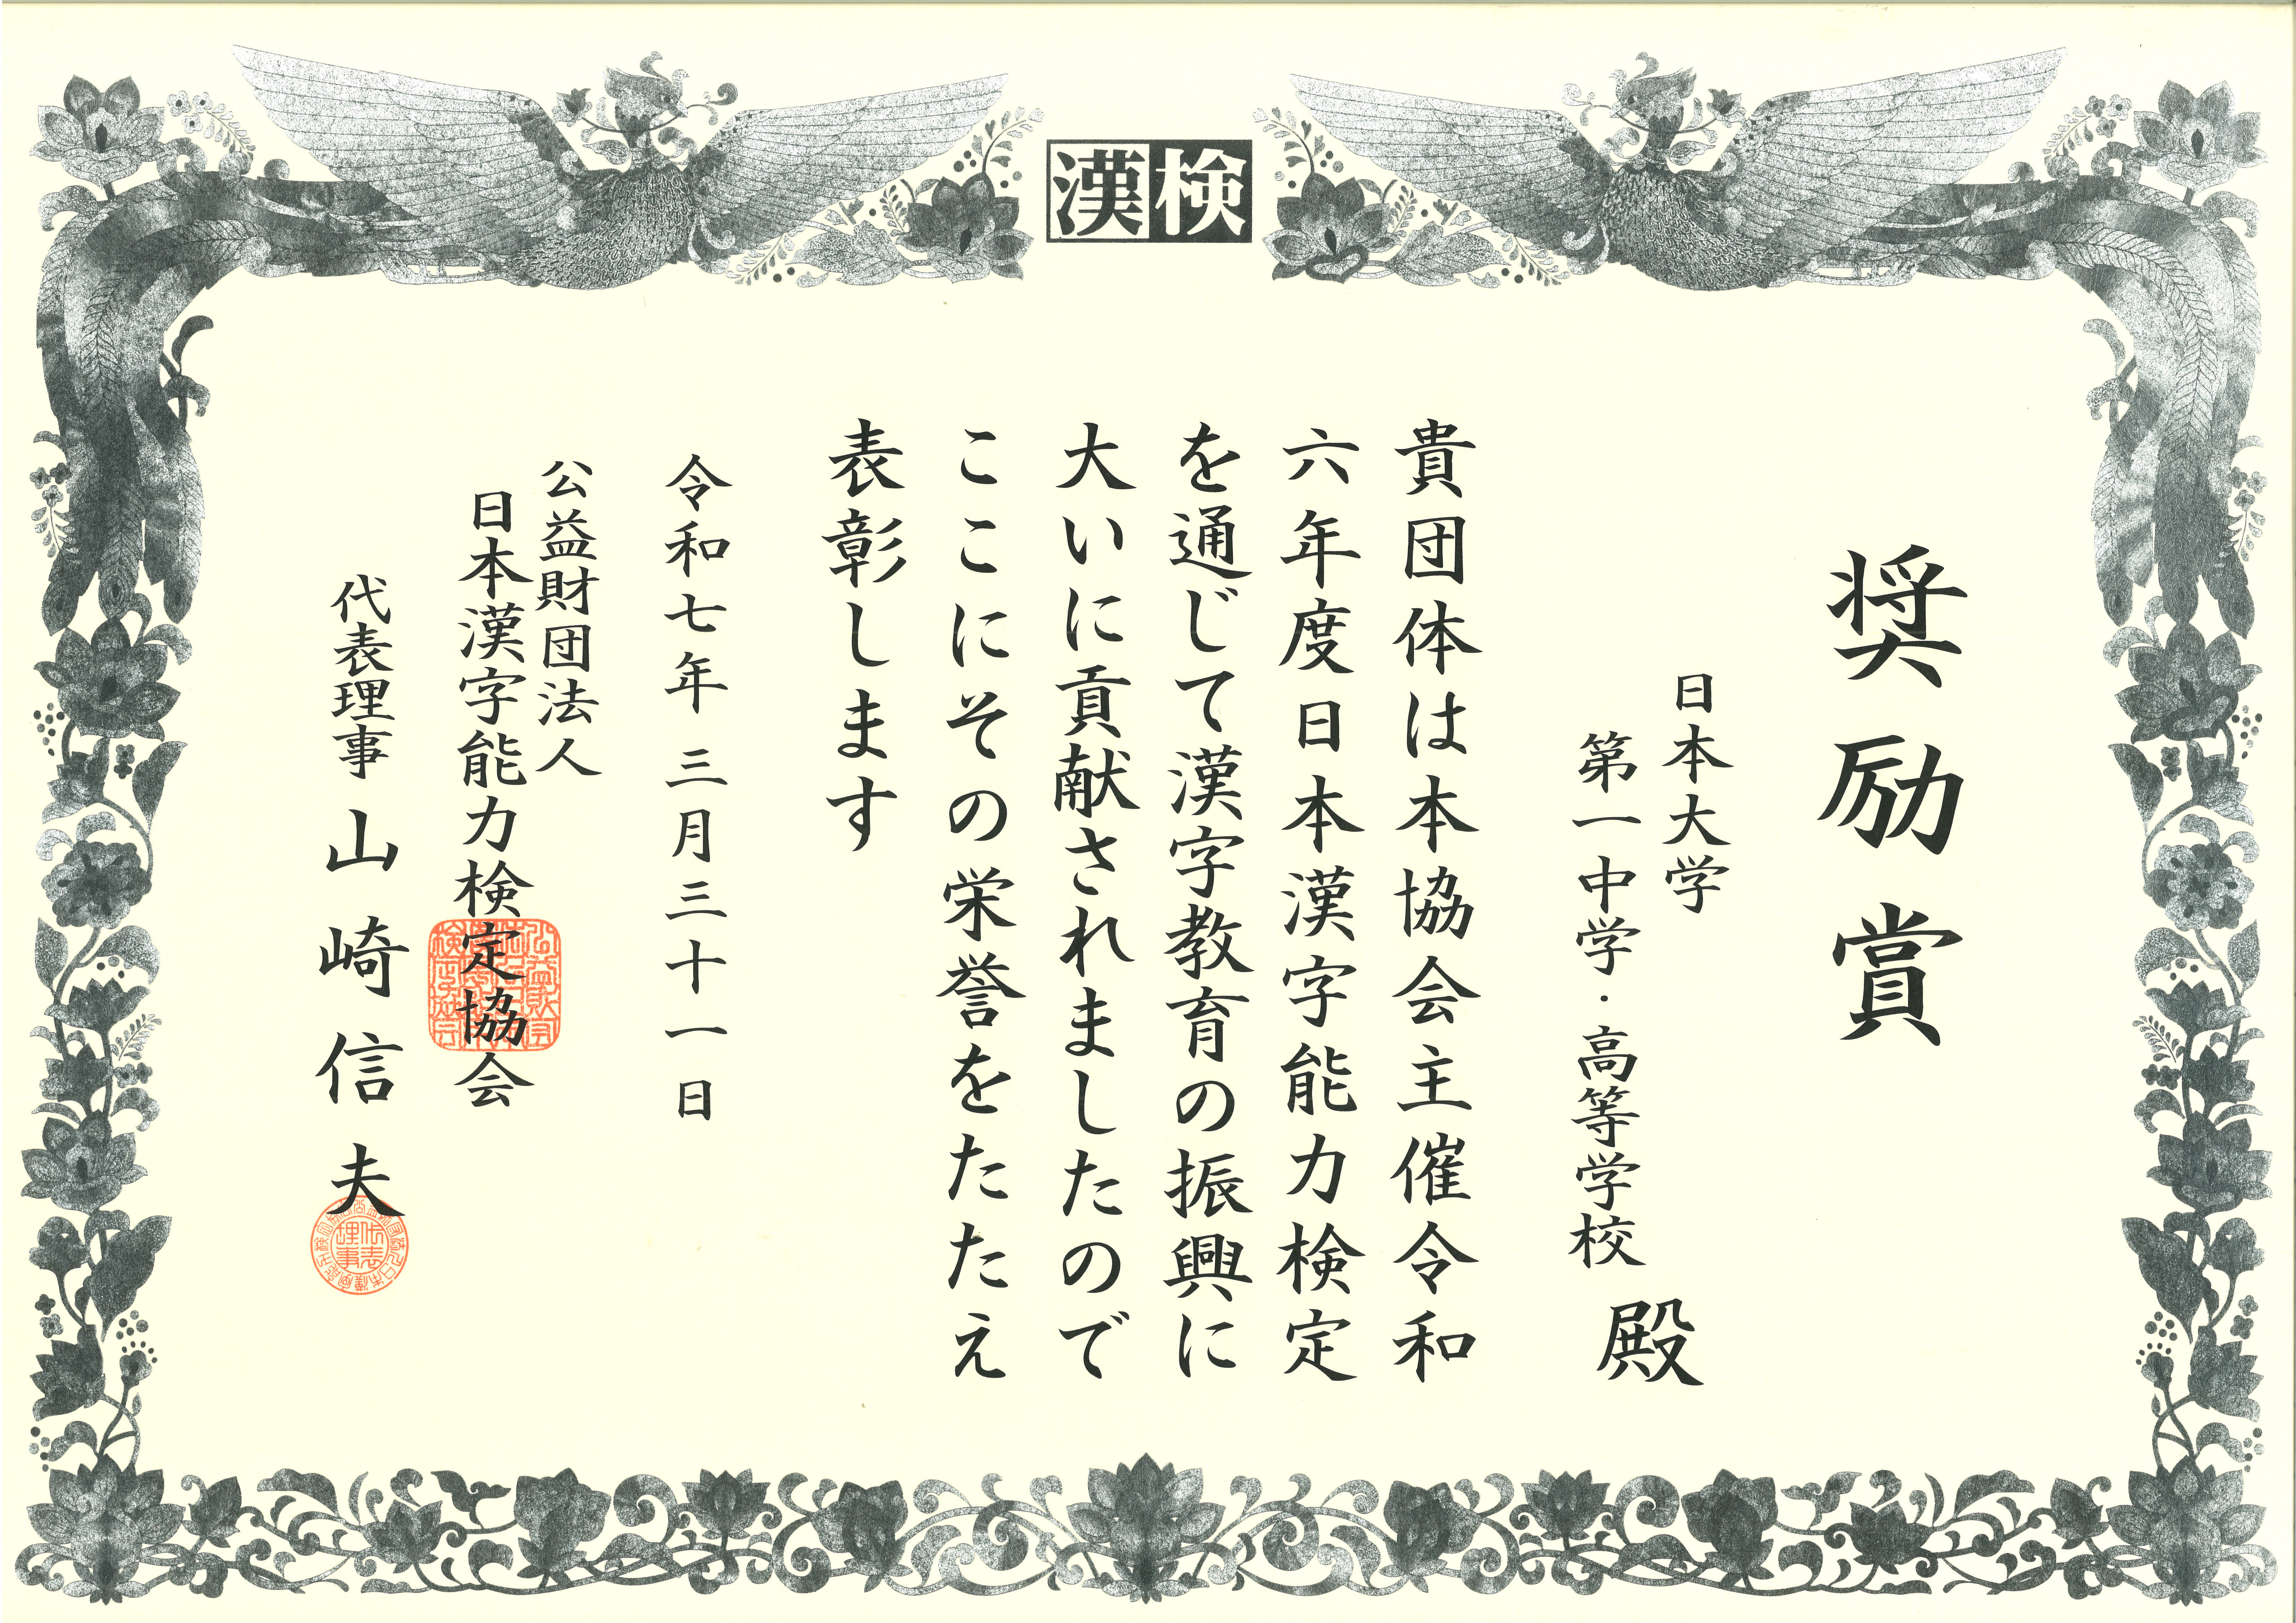 漢検
奨励賞
日本大学
第一中学・高等学校
殿
貴団体は本協会主催令和
六年度日本漢字能力検定
を通じて漢字教育の振興に
大いに貢献されましたので
ここにその栄誉をたたえ
表彰します
令和七年三月三十一日
公益財団法人
日本漢字能力検定協会
代表理事 山崎信夫
代表理事